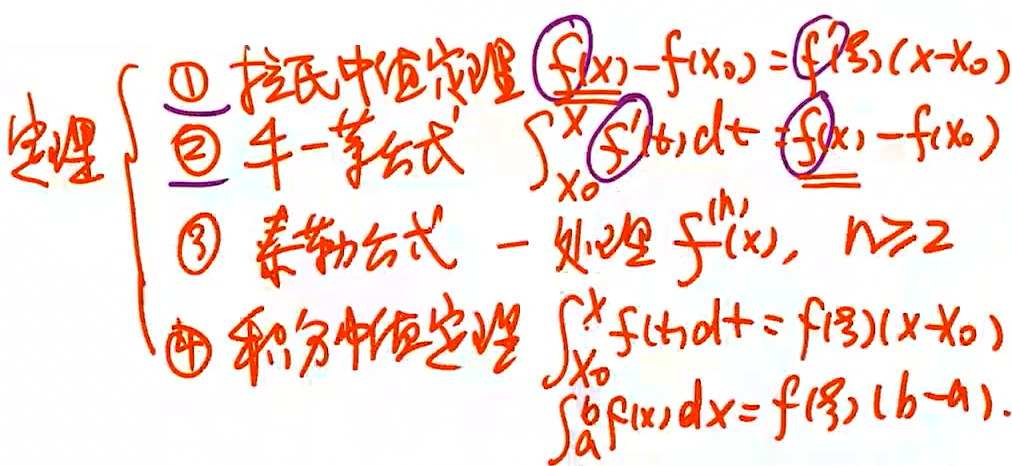 定理
① 拉氏中值定理 f(x)-f(x₀)=f'(ξ)(x-x₀)
② 牛-莱公式 ∫ₓ₀ˣ f'(t)dt=f(x)-f(x₀)
③ 泰勒公式 - 处理 f⁽ⁿ⁾(x), n≥2
④ 积分中值定理 ∫ₓ₀ˣ f(t)dt=f(ξ)(x-x₀)
∫ₐᵇ f(x)dx=f(ξ)(b-a).